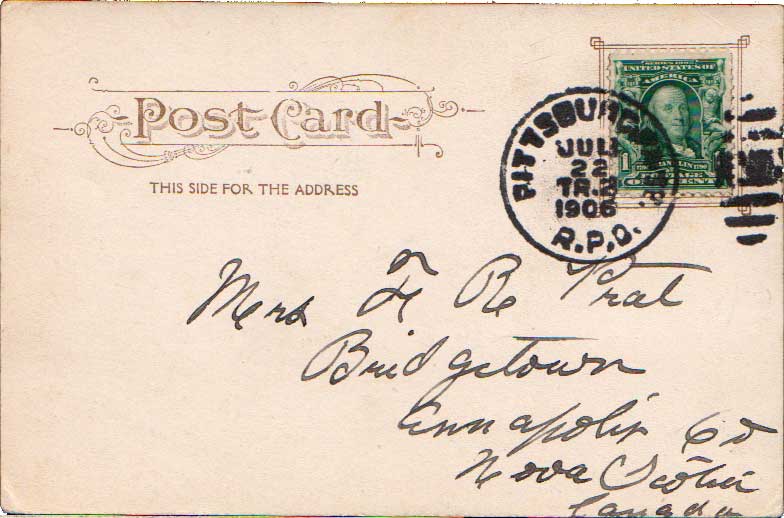 Post Card
THIS SIDE FOR THE ADDRESS
SERIES 1902
UNITED STATES OF
AMERICA
1 FRANKLIN
POSTAGE
ONE CENT
PITTSBURG
JUL
22
TR.2
1906
R.P.O.
Mrs F R Prat
Bridgetown
Annapolis Co
Nova Scotia
Canada